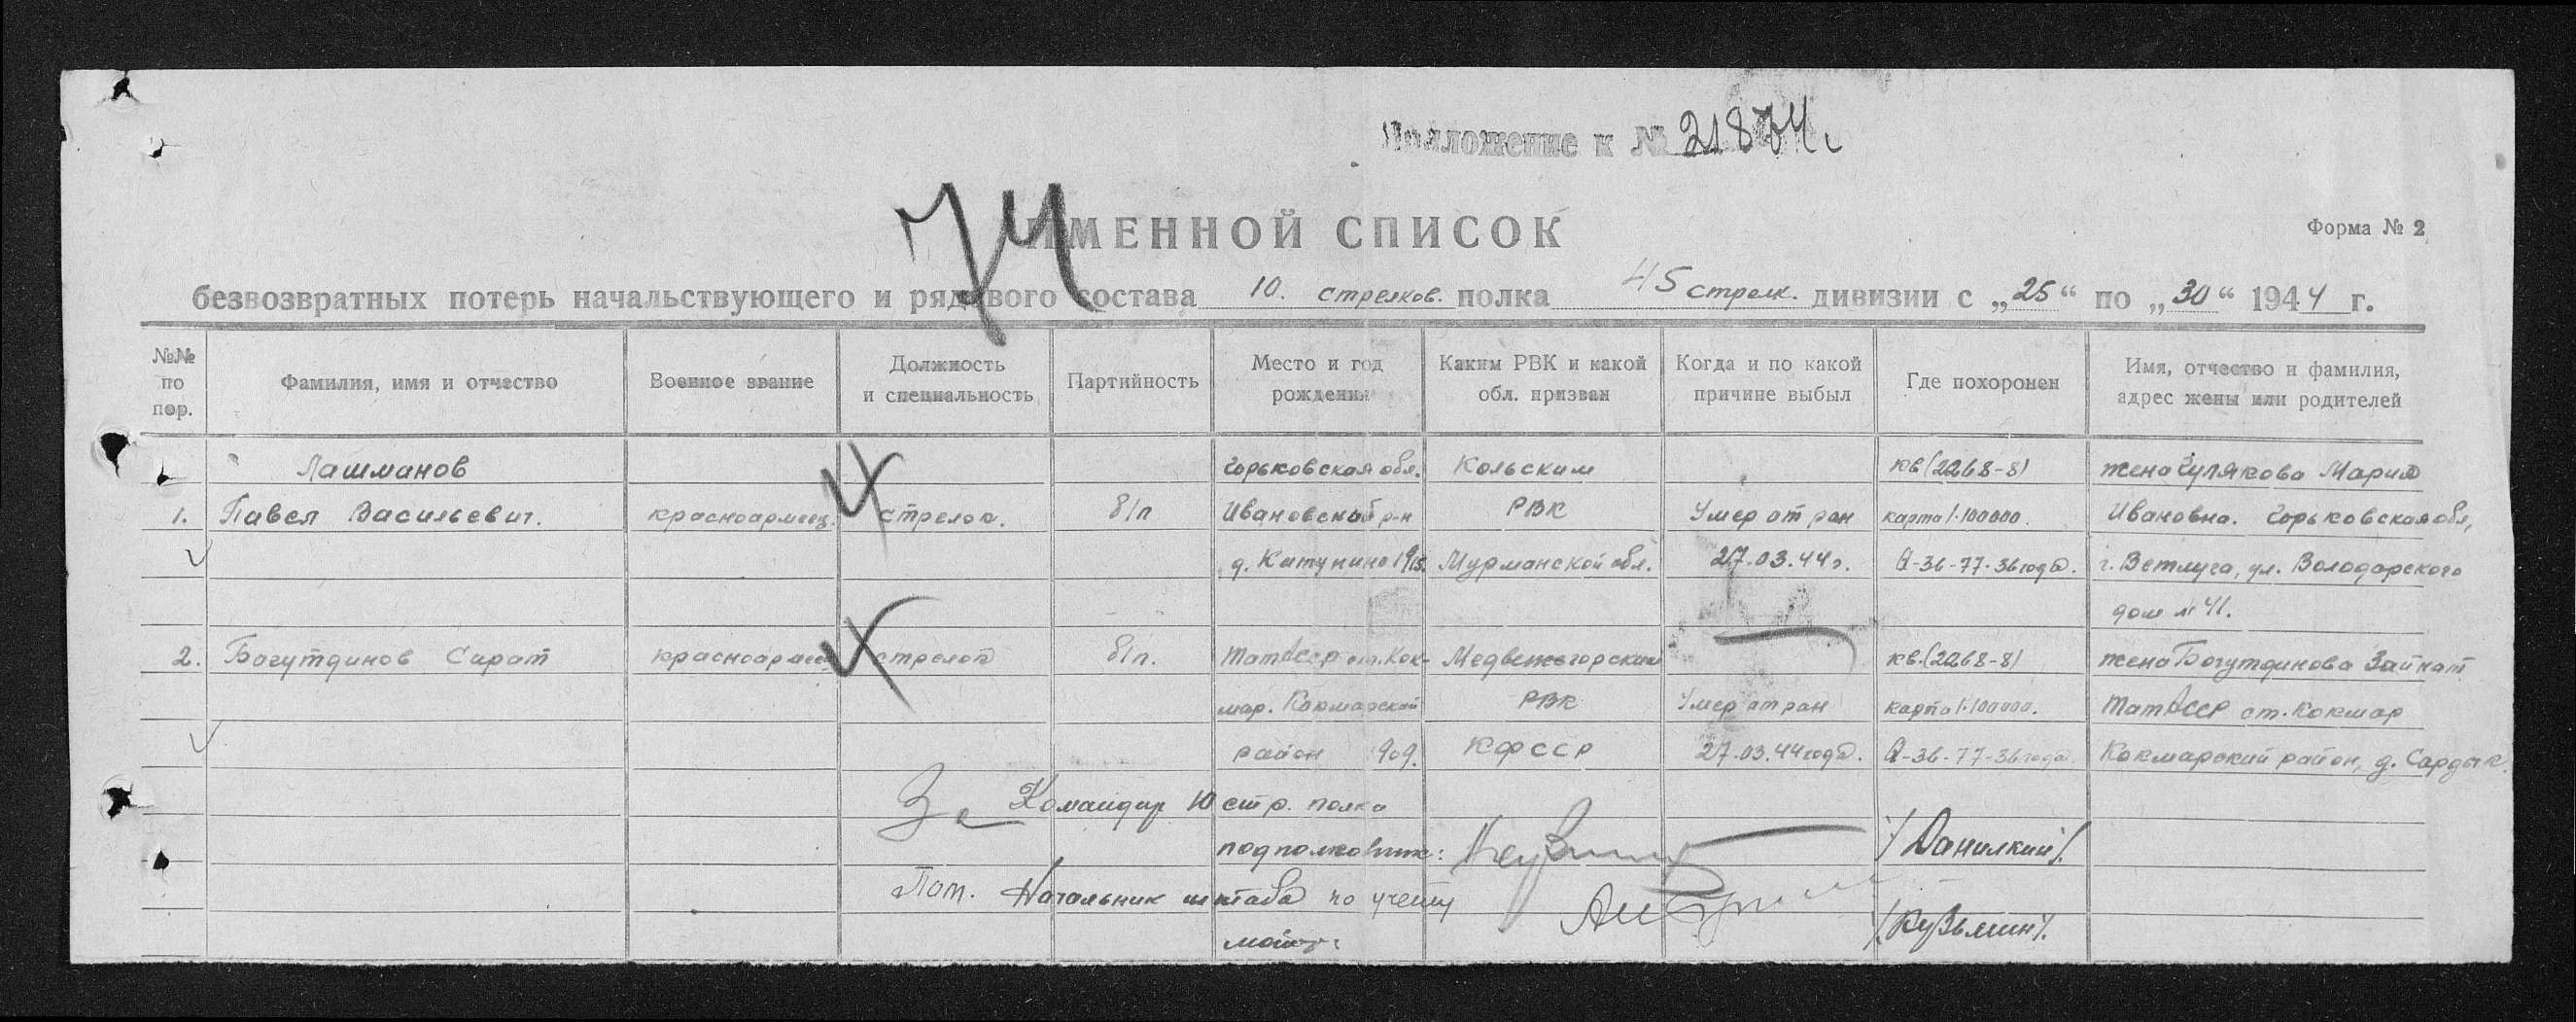 Приложение к № 21874с
74
ИМЕННОЙ СПИСОК
Форма № 2
безвозвратных потерь начальствующего и рядового состава 10. стрелков. полка 45 стрелк. дивизии с „25“ по „30“ 1944 г.
№№ по пор.
Фамилия, имя и отчество
Военное звание
Должность и специальность
Партийность
Место и год рождения
Каким РВК и какой обл. призван
Когда и по какой причине выбыл
Где похоронен
Имя, отчество и фамилия, адрес жены или родителей
Лашманов Горьковская обл. Кольским кв(2268-8) жена Чулякова Мария
1. Павел Васильевич. красноармеец. стрелок. б/п Ивановский р-н РВК Умер от ран карта 1:100000. Ивановна. Горьковская обл,
д. Катунино 1915. Мурманской обл. 27.03.44г. Q-36-77-36года. г. Ветлуга, ул. Володарского
дом № 41.
2. Богутдинов Сират красноармеец стрелок б/п. ТатАССР ст. Кок- Медвежьегорским кв.(2268-8) жена Богутдинова Зайнат
мар. Кокмарский РВК Умер от ран карта 1:100000. ТатАССР ст. Кокмар
район 909. КФССР 27.03.44 года. Q-36-77-36года. Кокмарский район, д. Сардык.
За Командир 10 стр. полка
подполковник: /Данилкин/.
Пом. Начальник штаба по учету
майор: /Кузьмин/.